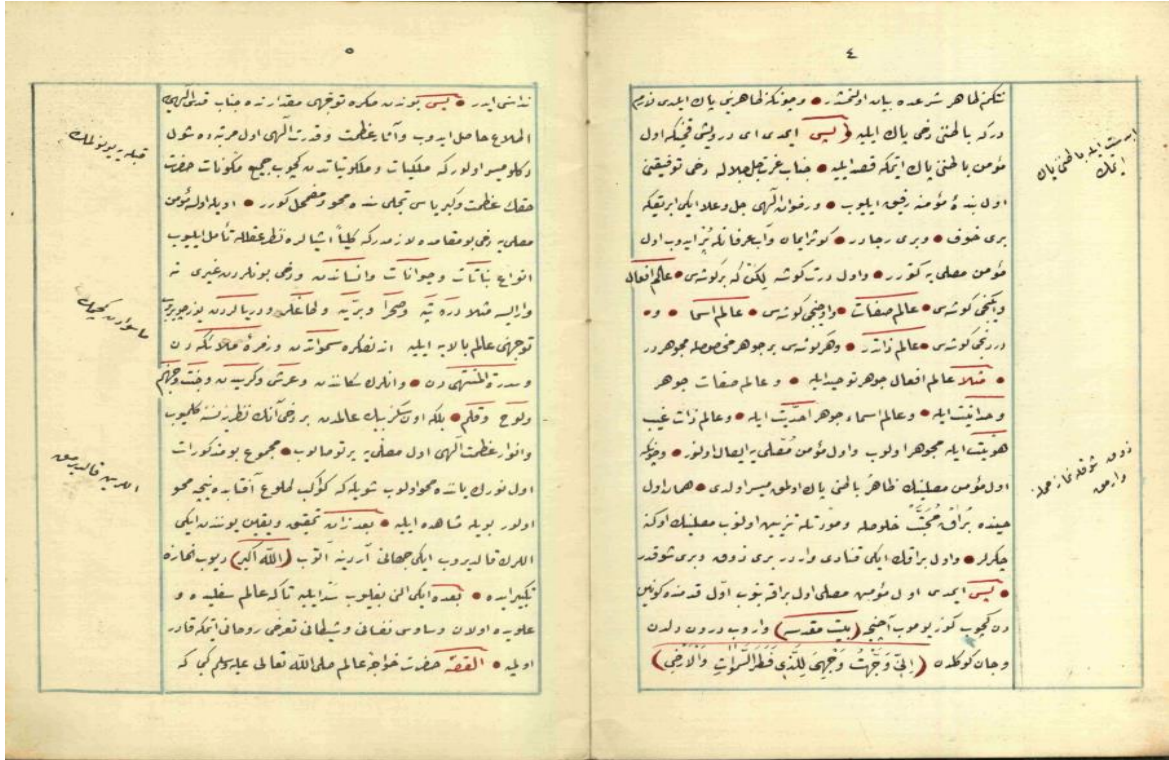 ٤
نتكم ظاهر شرعده بيان اولنمشدر • وچونكه ظاهرينى پاك ايلدى لازم
دركه باطننى دخى پاك ايليه (پس ايمدى اى درويش قچنكه اول
مؤمن باطننى پاك ايتمكه قصد ايليه • جناب عزت جل جلاله دخى توفيقنى
اول بندهٔ مؤمنه رفيق ايليوب • ورضوان الهى جل وعلا ايكى ابريقكه
برى خوف • وبرى رجادر • كوثر ايمان وآب عرفانله پُر ايدوب اول
مؤمن مصلى يه كتورر • واول درت كوشه لكن كه بر كوشه سى • عالم افعال
وايكنجى كوشه سى • عالم صفات • واوچنجى كوشه سى • عالم اسما • و •
دردنجى كوشه سى • عالم ذاتدر • وهر كوشه سى بر جوهر مخصوصله مجوهردر
• مثلا عالم افعال جوهر توحيد ايله • وعالم صفات جوهر
وحدانيت ايله • وعالم اسماء جوهر احديت ايله • وعالم ذات غيب
هويت ايله مجوهر اولوب واول مؤمن مصلى يه ايصال اولنور • وچونكه
اول مؤمن مصلينك ظاهر باطنى پاك اولمق ميسر اولدى • همان اول
حينده براق محبت خلوصله ومودتله تزيين اولنوب مصلينك اوكنه
چكرلر • واول براقك ايكى قنادى واردر برى ذوق وبرى شوقدر
• پس ايمدى اول مؤمن مصلى اول براقه بنوب اول قدمنده كونين
دن كچوب كوز يوموب آچنجه (بيت مقدسه) واروب درون دلدن
وجان كوكلدن (اِنِّى وَجَّهْتُ وَجْهِىَ لِلَّذِى فَطَرَ السَّمٰوَاتِ وَالْاَرْضَ)
ابدست ايله باطننى پاك
ايتمك
ذوق شوقله نماز محلنه
وارمق
٥
نداسنى ايدر • پس بوندن صكره توجهى مقدارنده جناب قدس الهيه
اطلاع حاصل ايدوب وآثار عظمت وقدرت الهى اول مرتبه ده شول
دكلو ميسر اولور كه ملكيات وملكوتياتدن كچوب جميع مكونات حضرت
حقك عظمت وكبرياسى تجلى سنده محو ومضمحل كورر • اويله اولسه مؤمن
مصلى يه دخى بو مقامده لازمدركه كلياً اشيالره نظر عقلله تأمل ايليوب
انواع نباتات وحيوانات وانساندن ودخى بونلردن غيرى نه
وارايسه مثلا دره تپه وصحرا وبريه ولجاغلر ودريالردن يوز چويروب
توجهنى عالم بالايه ايليه اندنصكره سمواتدن وزمرهٔ ملائكه دن
وسدرة المنتهى دن • وانلرك سكانندن وعرش وكرسيدن وجنت وجهنم
ولوح وقلم • بلكه اون سكز بيك عالمدن بر دخى آنك نظرينه نسنه كلميوب
وانوار عظمت الهى اول مصلى يه پرتو صالوب • مجموع بو مذكورات
اول نورك ياننده محو اولوب شويله كه كواكب طلوع آفتابده نيجه محو
اولور بويله مشاهده ايليه • بعد زان تحقيق ويقين يوزندن ايكى
اللرك قالديروب ايكى جهانى آردينه آتوب (الله اكبر) ديوب نمازه
تكبير ايده • بعده ايكى النى بغليوب سد ايليه تاكه عالم سفليده و
علويده اولان وساوس نفسانى وشيطانى تعرض روحانى ايتمكه قادر
اولميه • القصه حضرت خواجهٔ عالم صلى الله تعالى عليه وسلم كبى كه
قبله يه يونلمك
ماسوادن كچمك
اللرين قالديرمق